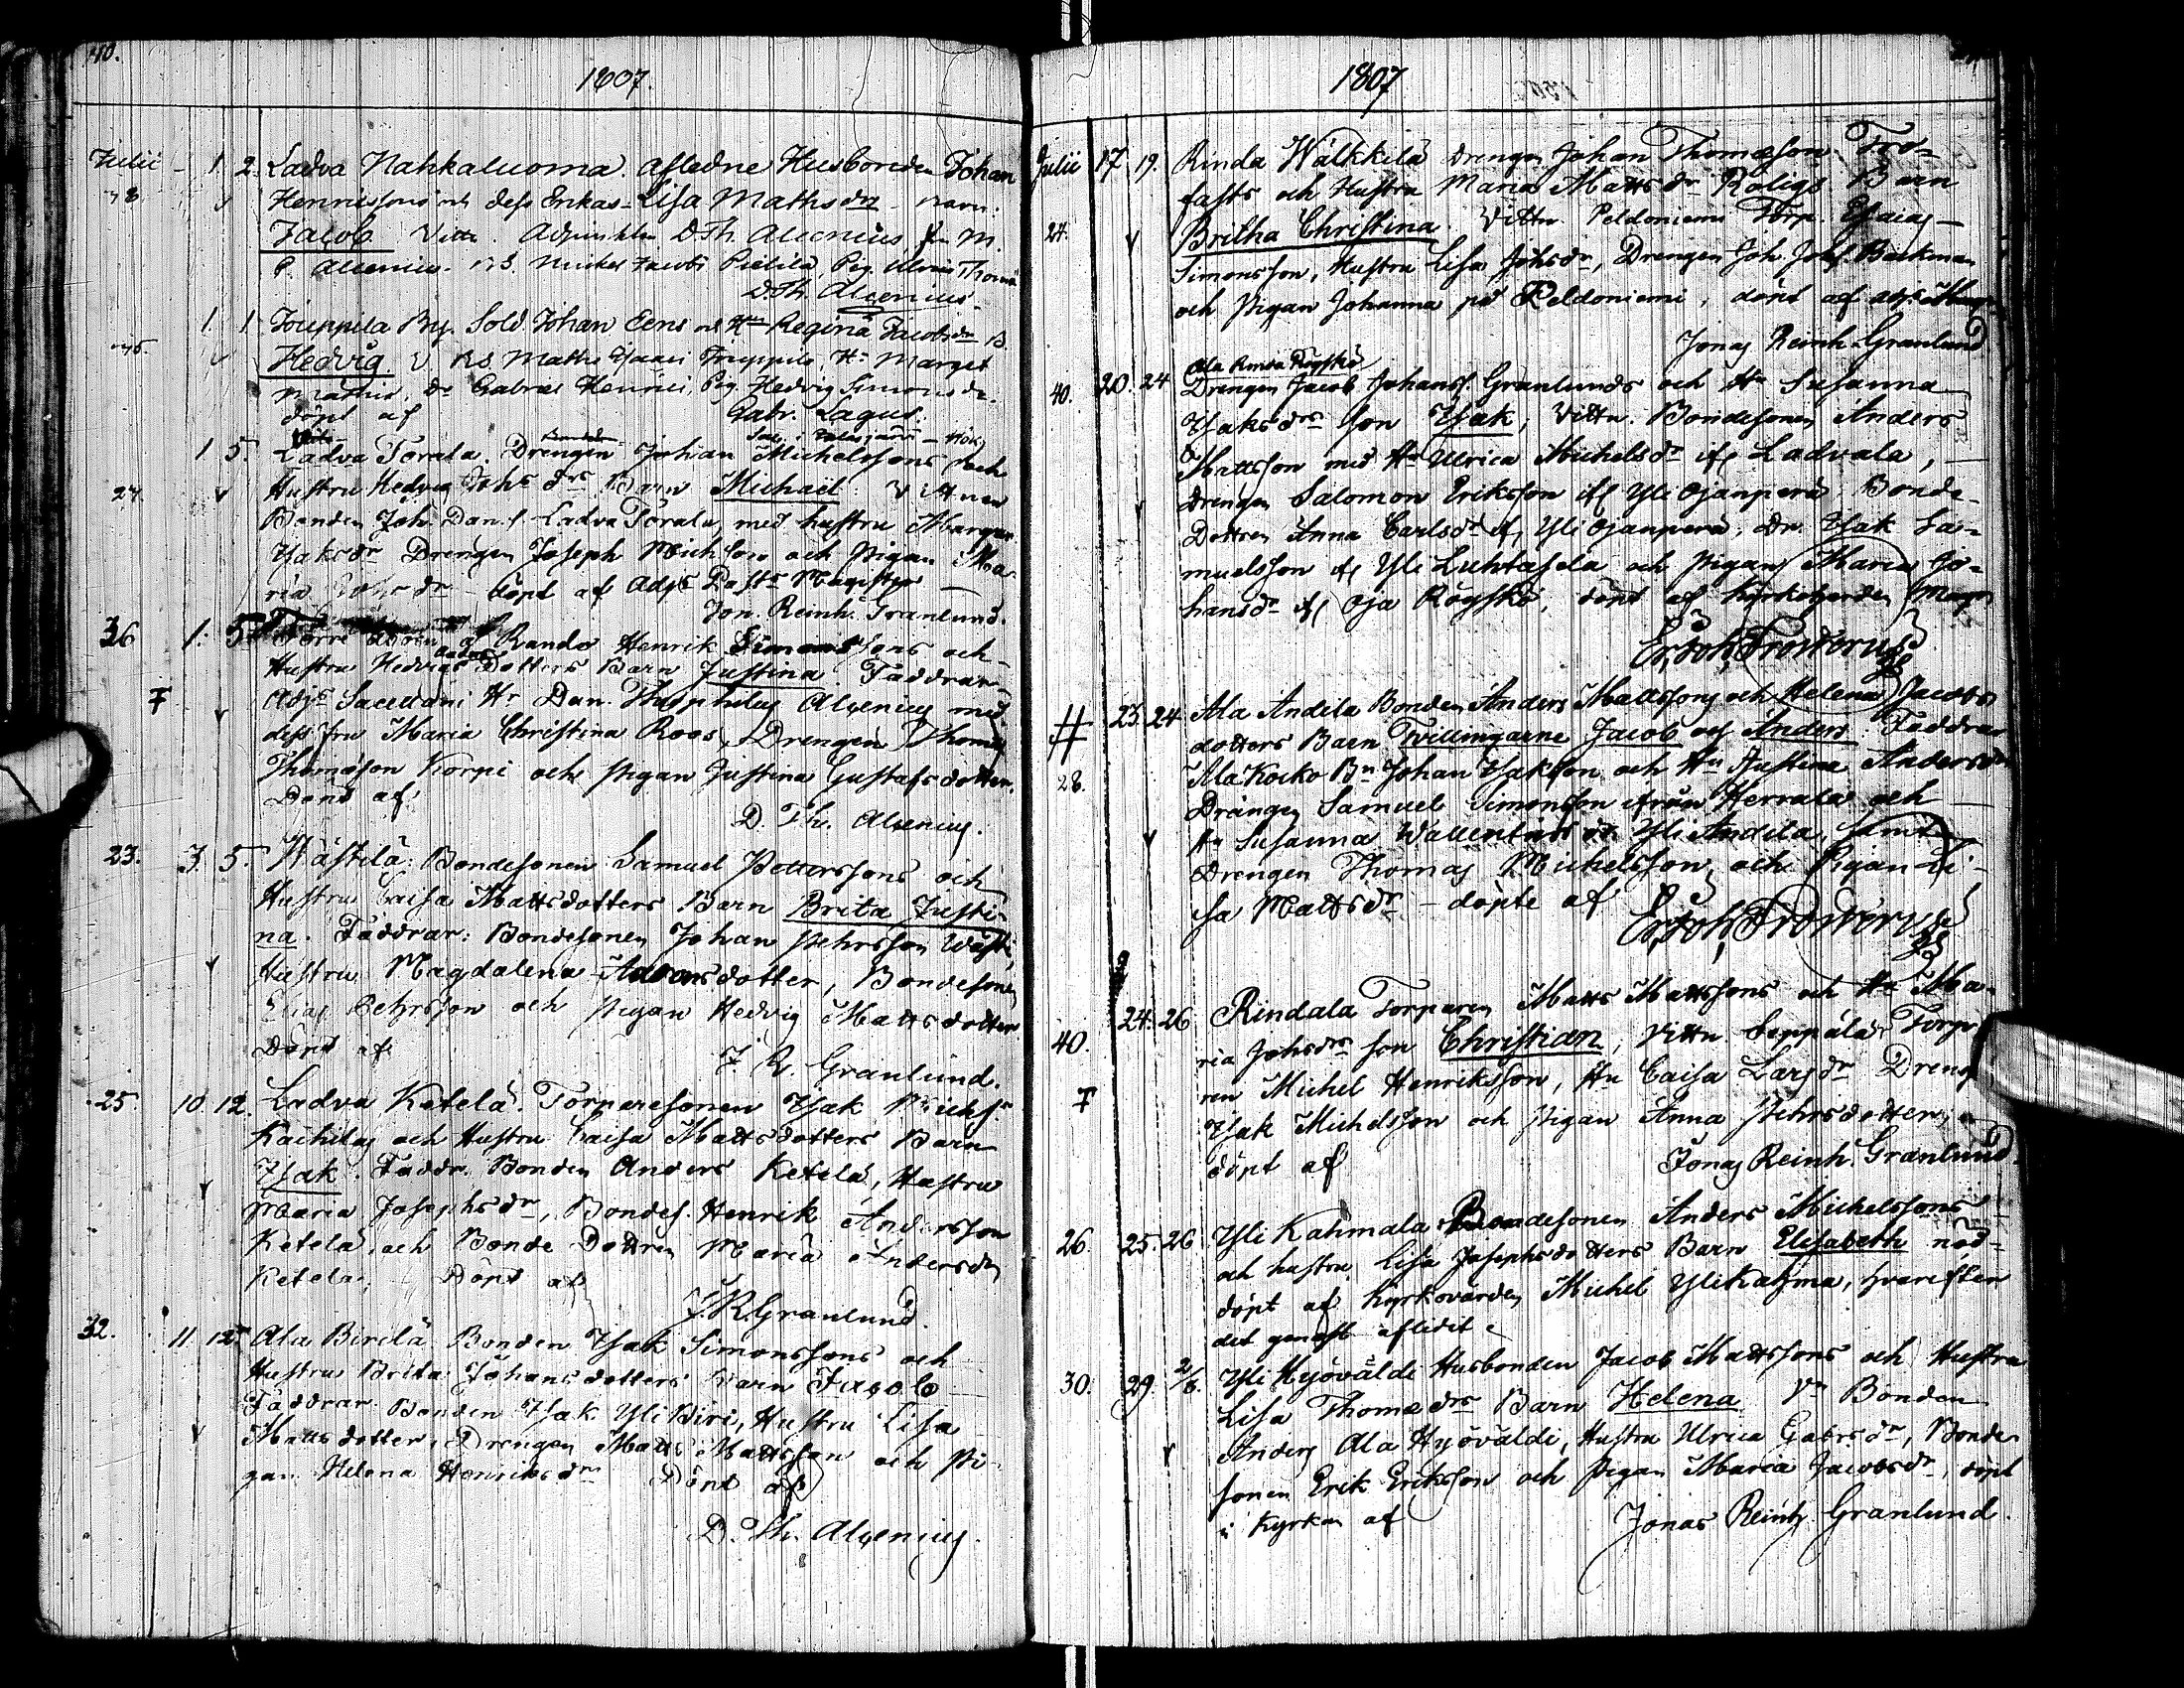 40.
1807.
Julii 1. 2. Ladva Nahkaluoma. Afledne Husbonden Johan
Henrissons och dess Enkas Lisa Mathsdr barn:
Jacob Vittn. Adjunkten D. Th. Alcenius, fru M.
C. Alcenius. BS. Michel Jacobs Pietilä, Pig. Thomæ
D. Th. Alcenius
1. 1. Jouppila By. Sold. Johan Eens och Hu Regina Jacobsdr B.
Hedvig V. BS. Matts Isaaci Jouppila, Hu Marget
Mathiæ, Dr Gabriel Henrici, Pig. Hedvig Simonsdr.
döpt af Gabr. Lagus.
1 5. Ladva Torala. Drengen Johan Michelssons och
24. Hustru Hedvig Johsdrs Barn Michaël Vittnen
Bonden Joh. Dan.s. Ladva Torala, med hustru Margar.
Isaksdr Drengen Joseph Michsson och Pigan Ma-
ria döpt af Adjs Past. Magister
Jon. Reinh. Granlund.
36 1. 5. Rando Henrik Simonssons och
Hustru Hedvigs Dotters Barn Justina. Faddrar
Adjs Sacellani Hr Dan. Theophilus Alcenius med
dess fru Maria Christina Roos, Drengen Thomas
Thomason Korpi och Pigan Justina Gustafsdotter.
Döpt af
D. Th. Alcenius.
23. 3. 5. Wästilä: Bondesonen Samuel Pettersssons och
Hustru Caisa Mattsdotters Barn Brita Justi-
na. Faddrar: Bondesonen Johan Pehrsson Wästi,
Hustru Magdalena Adamsdotter, Bondesonen
Elias Pehrsson och Pigan Hedvig Mattsdotter
Döpt af
J. R. Granlund.
25. 10. 12. Ladva Ketelä. Torparesonen Isak Michs:
Kachilas och Hustru Caisa Mattsdotters Barn
Isak. Faddr. Bonden Anders Ketelä, Hustru
Maria Josephsdr, Bondes. Henrik Andersson
Ketelä, och Bonde Dottren Maria Andersdr
Ketelä, Döpt af
J. R. Granlund.
32. 11. 12. Ala Birilä Bonden Isak Simonssons och
Hustru Brita Johansdotters barn Jacob
Faddrar Bonden Isak Yli Biri, Hustru Lisa
Mattsdotter, Drengen Matts Mattsson och Pi-
gan Helena Henriksdr Döpt af
D. Th. Alcenius.
1807
Julii 17. 19. Rinda Wälkkilä drengen Johan Thomæson Tro-
fasts och Hustru Maria Mattsdr Roligs Barn
24. Britha Christina. Vittn. Peldoniemi Torp. Esaias
Simonsson, Hustru Lisa Johsdr, Drengen Joh. Johs. Backman
och Pigan Johanna på Peldoniemi, döpt af
Jonas Reinh. Granlund
Ala Rinda Röyskö
40. 20. 24 Drengen Jacob Johanss. Granlunds och Hu Susanna
Isaksdrs Son Isak; Vittn. Bondesonen Anders
Mattsson med Hu Ulrica Michelsdr ifr. Ladvala,
drengen Salomon Eriksson ifr Yli Ojanperä, Bonde-
Dottren Anna Carlsdr ifr Yli Ojanperä, Dr. Isak Sa-
muelsson ifr Yli Luhtasela och Pigan Maria Jo-
hansdr ifr Oja Röyskö, döpt af Kyrkoherden Mag.
Er. Joh. Frosterus
23. 24 Ala Andila Bonden Anders Mattssons och Helena Jacobs
dotters Barn Tvillingarne Jacob och Anders. Faddrar
28. Ala Kocko Bn Johan Isaksson och Hu Justina Andersdr
Drängen Samuel Simonsson ifrån Herrala och
Hu Susanna Yli Andila, samt
Drengen Thomas Michelsson, och Pigan Li-
sa Mattsdr – döpte af
Er. Joh. Frosterus
24. 26 Rindala Torparen Matts Mattssons och Hu Ma-
40. ria Johsdrs son Christian, Vittn. Seppälä Torpa
ren Michel Henriksson, Hu Caisa Larsdr Dreng
Isak Michelsson och Pigan Anna Pehrsdotter,
döpt af Jonas Reinh. Granlund.
26. 25. 26 Yli Kahmala Bondesonen Anders Michelssons
och hustru Lisa Josephsdotters Barn Elisabeth nöd-
döpt af Kyrkovärden Michel Yli Kahma, hvarefter
det genast aflidit.
30. 29. 2/8. Yli Hyöväldi Husbonden Jacob Mattssons och Hustru
Lisa Thomædrs Barn Helena Vn Bonden
Anders Ala Hyöväldi, Hustru Ulrica Gabrsdr, Bonde
sonen Erik Eriksson och Pigan Maria Jacobsdr, döpt
i Kyrkan af Jonas Reinh. Granlund.